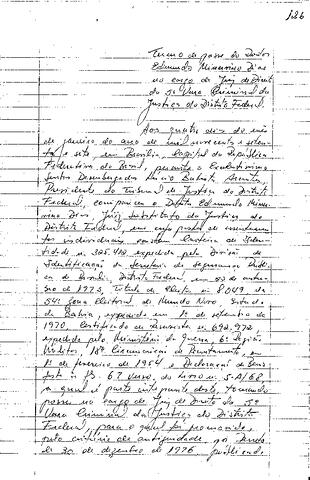 126
Termo de posse do Doutor
Edmundo Minervino Dias
no cargo de Juiz de Direito
da 5ª Vara Criminal da
Justiça do Distrito Federal.
Aos quatro dias do mês
de janeiro do ano de mil novecentos e seten-
ta e sete em Brasília, Capital da República
Federativa do Brasil, perante o Excelentíssimo
Senhor Desembargador
Presidente do Tribunal de Justiça do Distrito
Federal, compareceu o Doutor Edmundo Miner-
vino Dias, Juiz Substituto da Justiça do
Distrito Federal, em cuja pasta de assentamen-
tos individuais constam Carteira de Iden-
tidade nº 325.418 expedida pela Divisão de
Identificação da Secretaria de Segurança Públi-
ca de Brasília, Distrito Federal, em de outu-
bro de 1973, Título de Eleitor nº 8049 da
54ª Zona Eleitoral de Mundo Novo, Estado
da Bahia, expedido em 1º de setembro de
1970, Certificado de Reservista nº 690.972
expedido pelo Ministério da Guerra, 6ª Região
Militar, 18ª Circunscrição de Recrutamento, em
1º de fevereiro de 1954 e Declaração de Bens
fls. 67 verso, do Livro nº 5-A/68
a qual é parte integrante deste, tomando
posse no cargo de Juiz de Direito da 5ª
Vara Criminal da Justiça do Distrito
Federal, para o qual foi promovido,
pelo critério de antiguidade, por
de 30 de dezembro de 1976 publicado